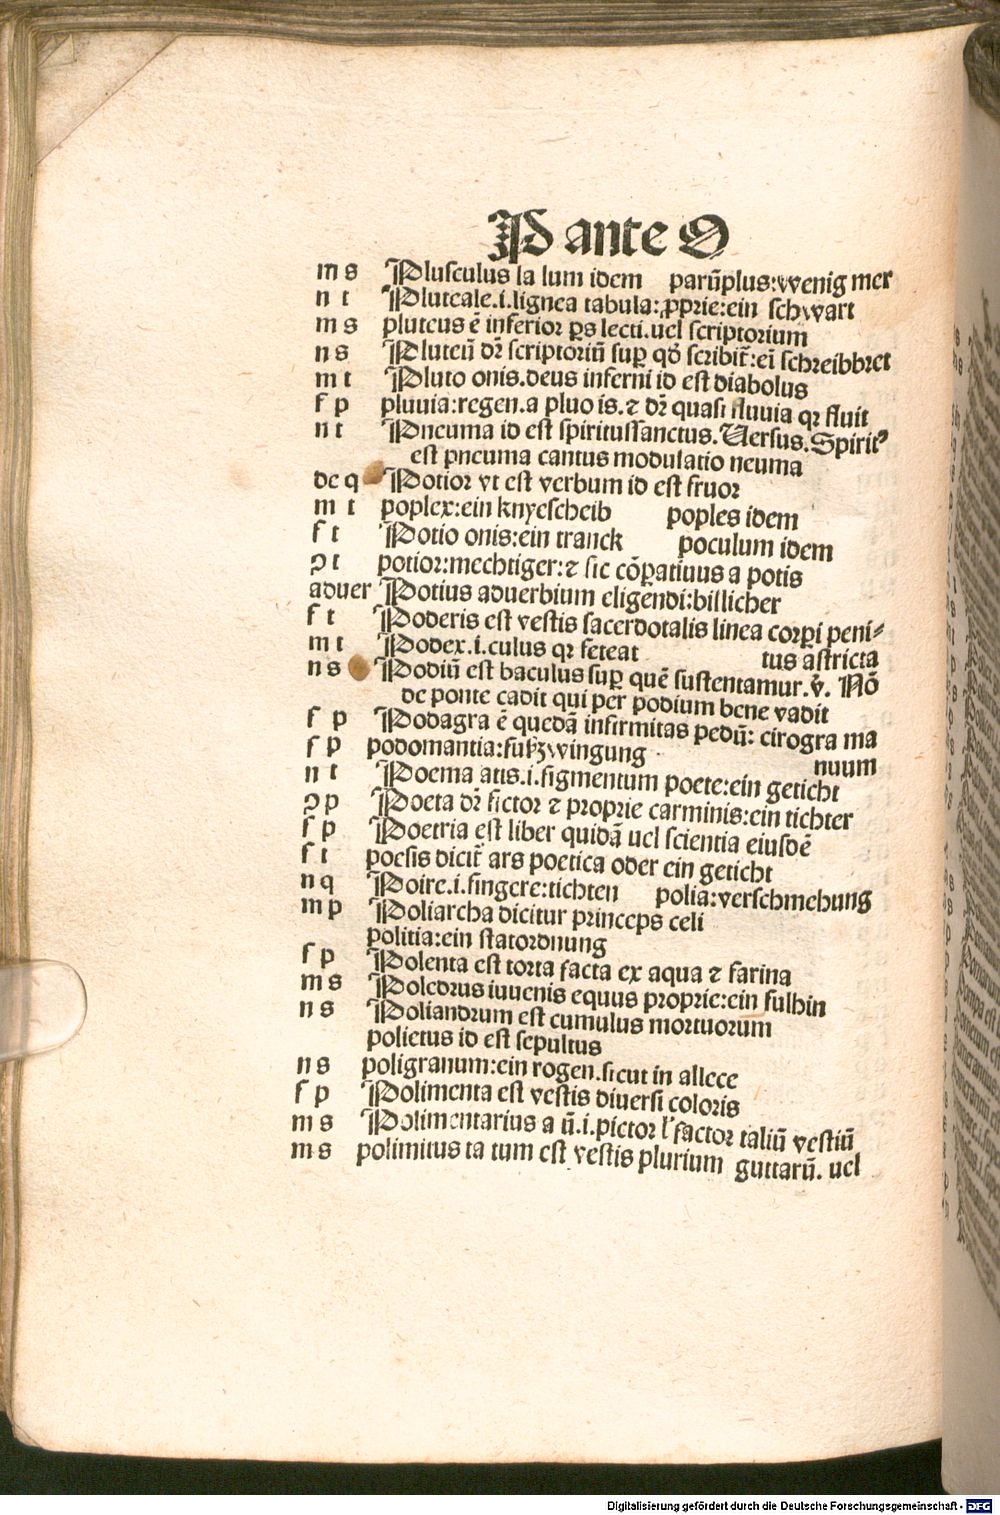 P ante O
m s Plusculus la lum idem parũplus:wenig mer
n t Pluteale.i.lignea tabula:ꝓprie:ein schwart
m s pluteus ē inferior ꝑs lecti.uel scriptorium
n s Pluteũ dr̃ scriptoriũ suꝑ qđ scribit̃:eĩ schreibbret
m t Pluto onis.deus inferni id est diabolus
f p pluuia:regen.a pluo is.⁊ dr̃ quasi fluuia qꝛ fluit
n t Pneuma id est spiritussanctus.Uersus.Spiritꝰ
est pneuma cantus modulatio neuma
de q Potior vt est verbum id est fruor
m t poplex:ein knyescheib poples idem
f t Potio onis:ein tranck poculum idem
ꝯ t potior:mechtiger:⁊ sic cõꝑatiuus a potis
aduer Potius aduerbium eligendi:billicher
f t Poderis est vestis sacerdotalis linea corꝑi peni⸗
m t Podex.i.culus qꝛ feteat tus astricta
n s Podiũ est baculus suꝑ quē sustentamur.v̄. Nõ
de ponte cadit qui per podium bene vadit
f p Podagra ē quedã infirmitas pedũ: cirogra ma
f p podomantia:fußzwingung nuum
n t Poema atis.i.figmentum poete:ein geticht
ꝯ p Poeta dr̃ fictor ⁊ proprie carminis:ein tichter
f p Poetria est liber quidã uel scientia eiusdē
f t poesis dicit̃ ars poetica oder ein geticht
n q Poire.i.fingere:tichten polia:verschmehung
m p Poliarcha dicitur princeps celi
politia:ein statordnung
f p Polenta est torta facta ex aqua ⁊ farina
m s Poledrus iuuenis equus proprie:ein fulhin
n s Poliandrum est cumulus mortuorum
polietus id est sepultus
n s poligranum:ein rogen.sicut in allece
f p Polimenta est vestis diuersi coloris
m s Polimentarius a ũ.i.pictor l' factor taliũ vestiũ
m s polimitus ta tum est vestis plurium guttarũ. uel
Digitalisierung gefördert durch die Deutsche Forschungsgemeinschaft - DFG